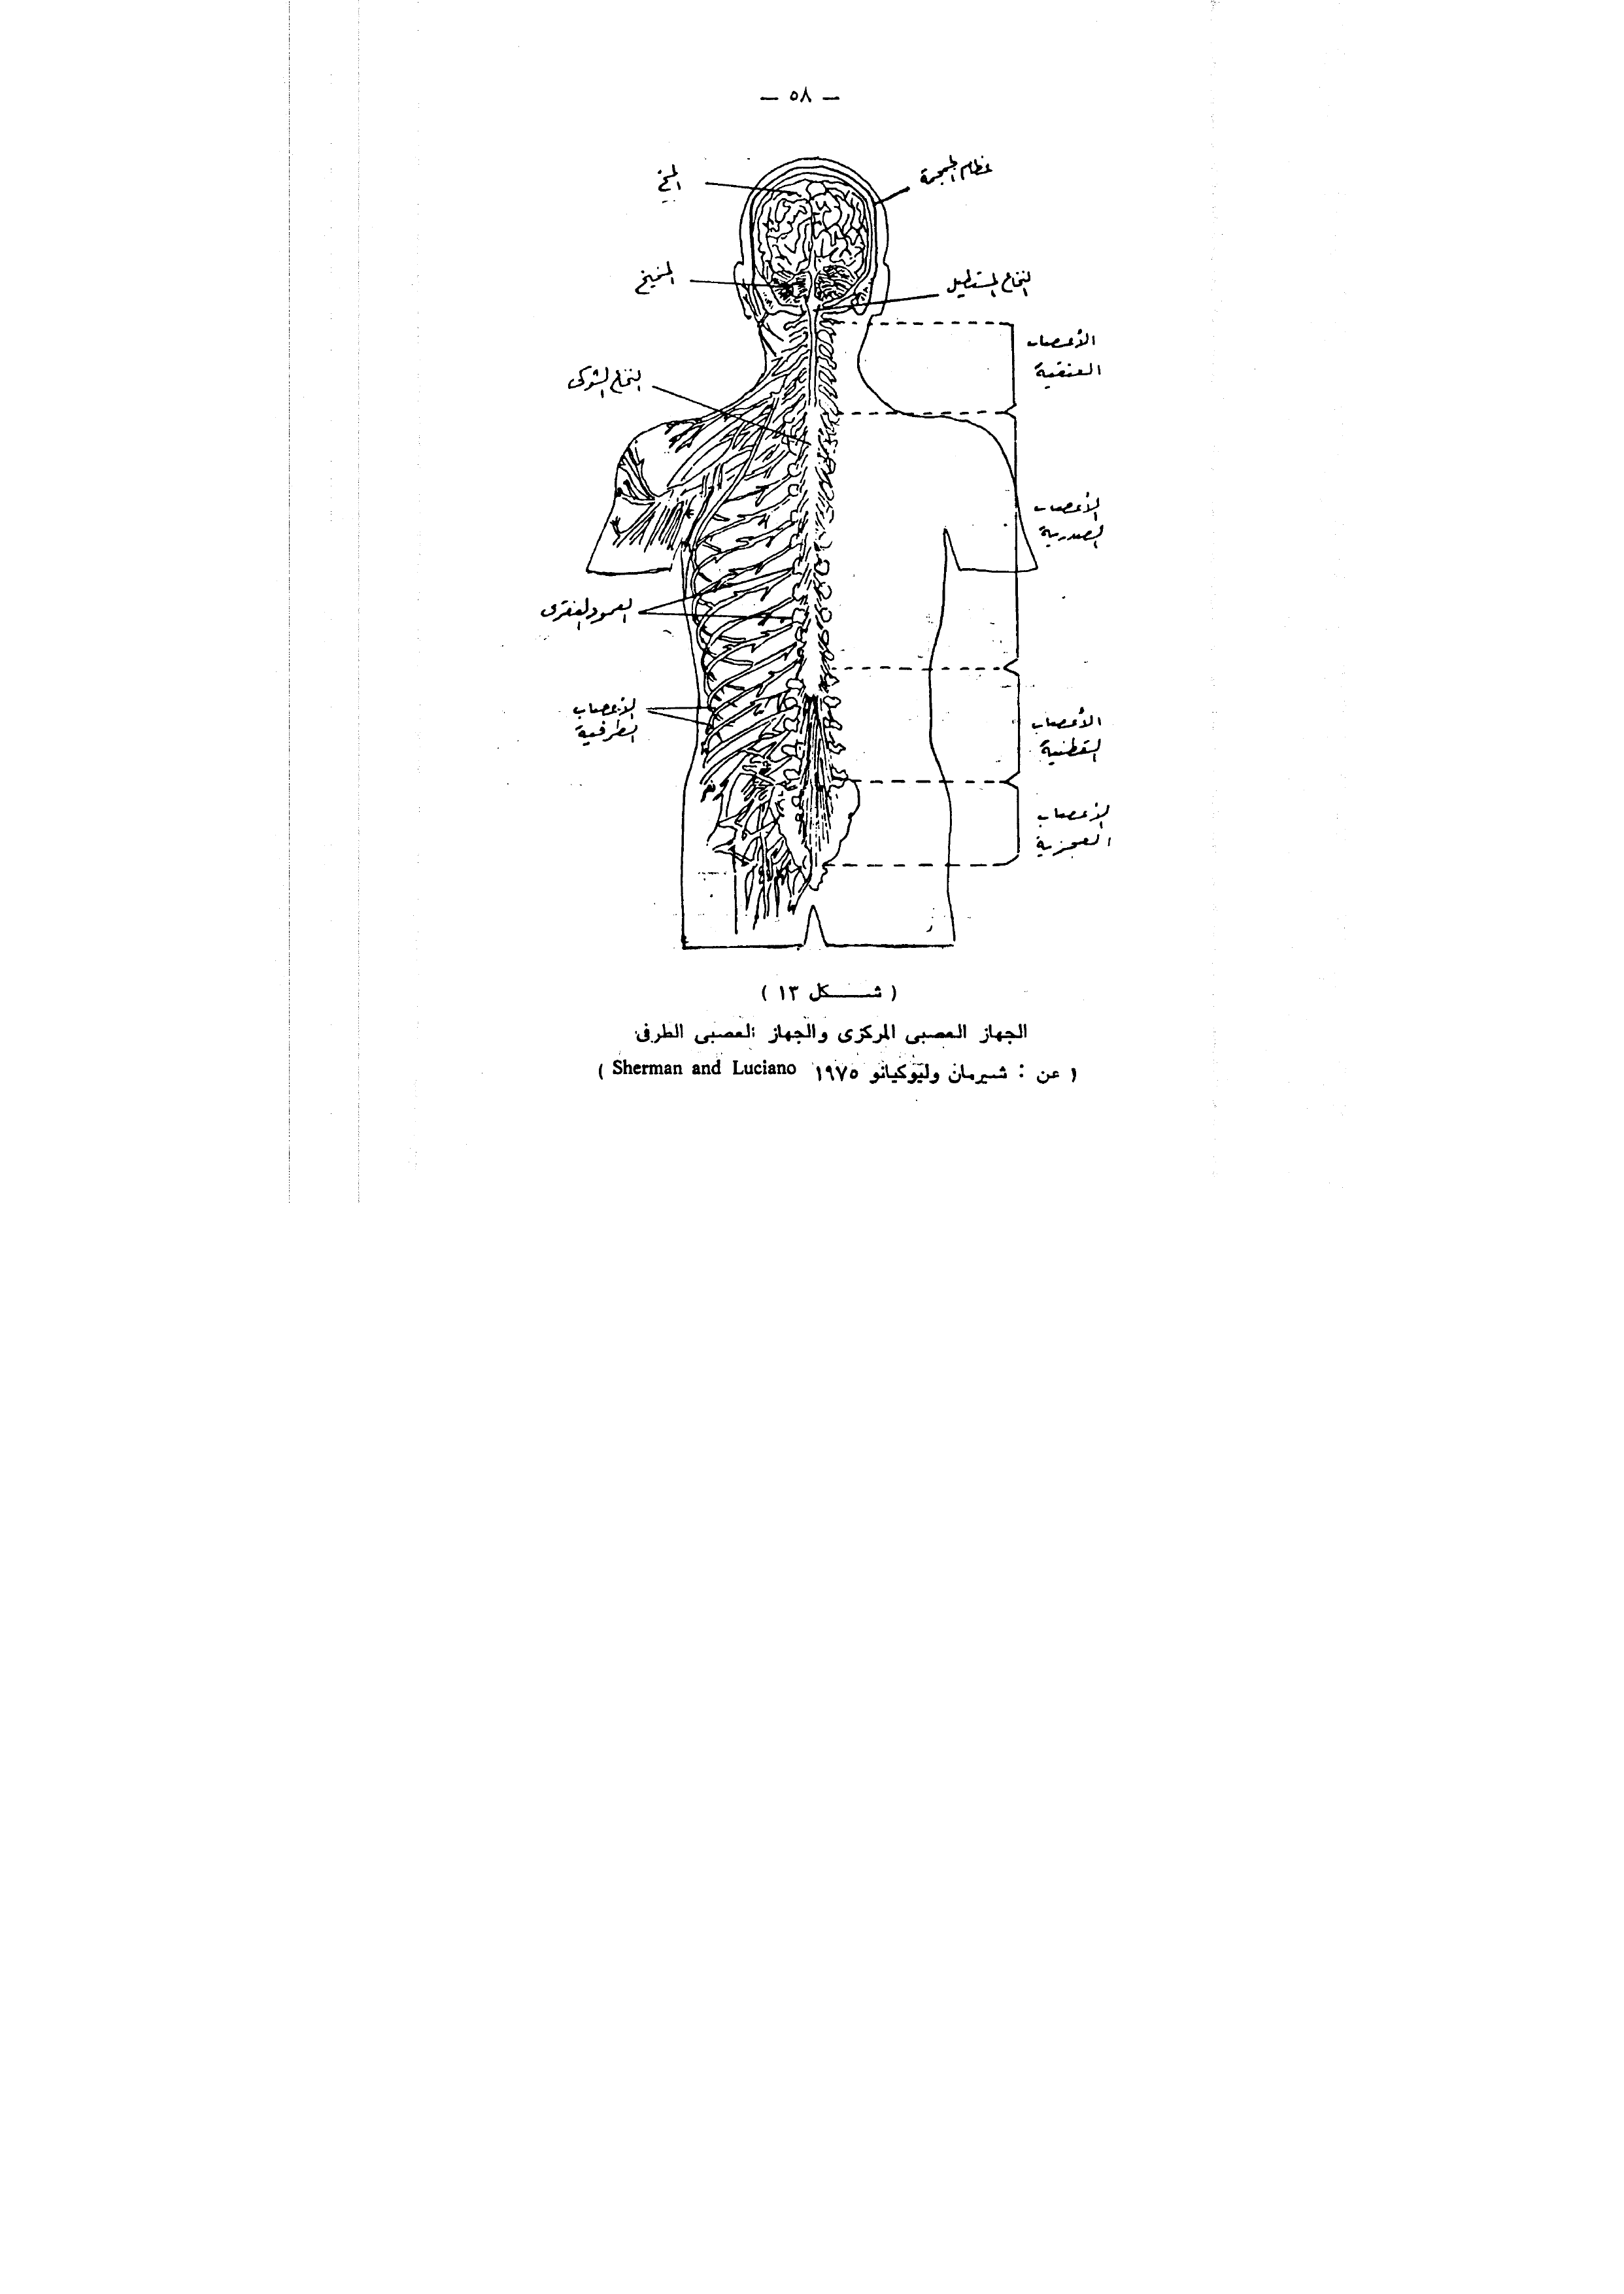 — ٥٨ —
عظام الجمجمة
المخ
المخيخ
النخاع المستطيل
الأعصاب
العنقية
النخاع الشوكى
الأعصاب
الصدرية
العمود الفقرى
الأعصاب
الطرفية
الأعصاب
القطنية
الأعصاب
العجزية
( شـــــكل ١٣ )
الجهاز العصبى المركزى والجهاز العصبى الطرفى
( عن : شيرمان وليوكيانو ١٩٧٥ Sherman and Luciano )